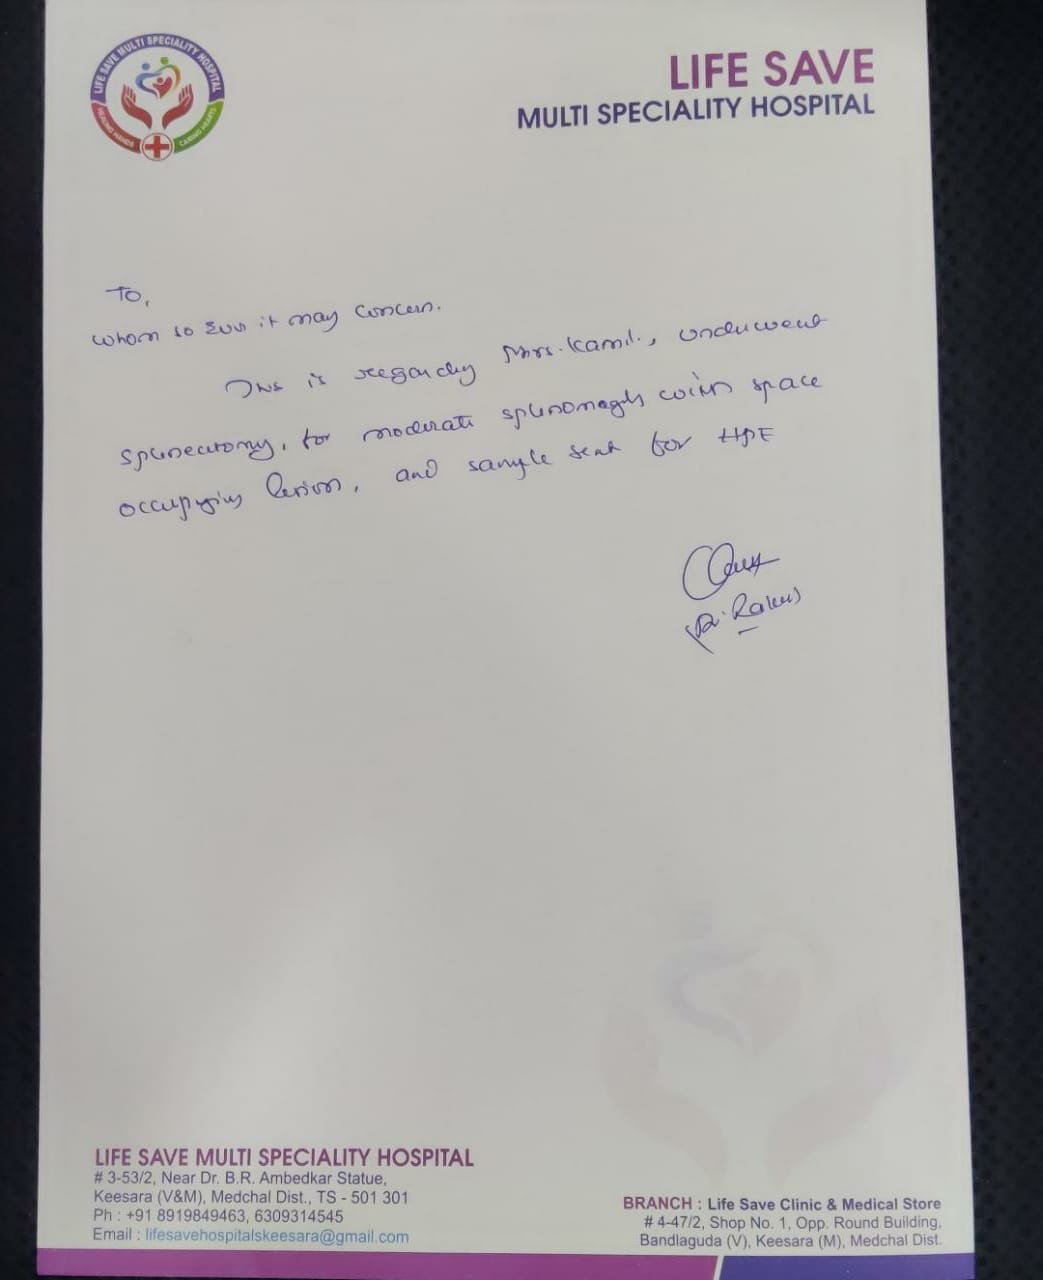 LIFE SAVE MULTI SPECIALITY HOSPITAL
HEALING HANDS
CARING HEARTS
LIFE SAVE
MULTI SPECIALITY HOSPITAL
To,
whom so ever it may concern.
This is regarding Mrs. Kamil., underwent
splenectomy, for moderate splenomegaly with space
occupying lesion, and sample sent for HPE
Dr.
LIFE SAVE MULTI SPECIALITY HOSPITAL
# 3-53/2, Near Dr. B.R. Ambedkar Statue,
Keesara (V&M), Medchal Dist., TS - 501 301
Ph : +91 8919849463, 6309314545
Email : lifesavehospitalskeesara@gmail.com
BRANCH : Life Save Clinic & Medical Store
# 4-47/2, Shop No. 1, Opp. Round Building,
Bandlaguda (V), Keesara (M), Medchal Dist.